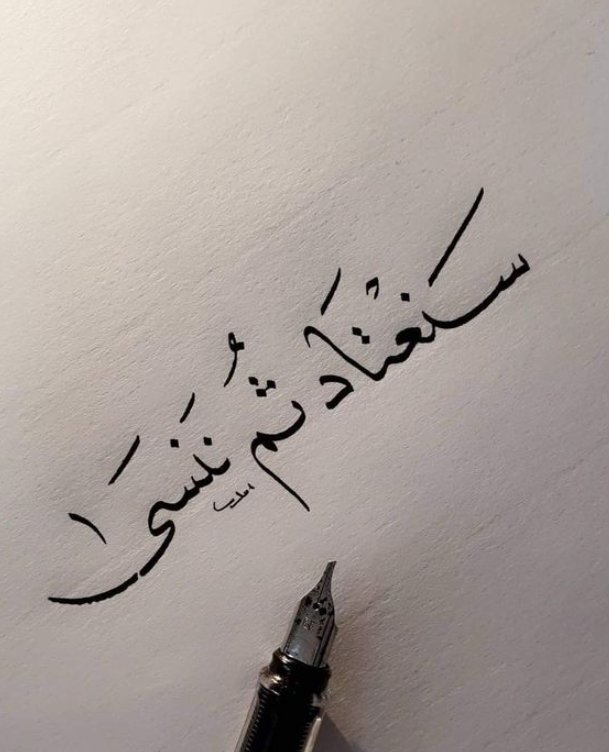 سَنَعْتَادَ ثُم نَنَسَى